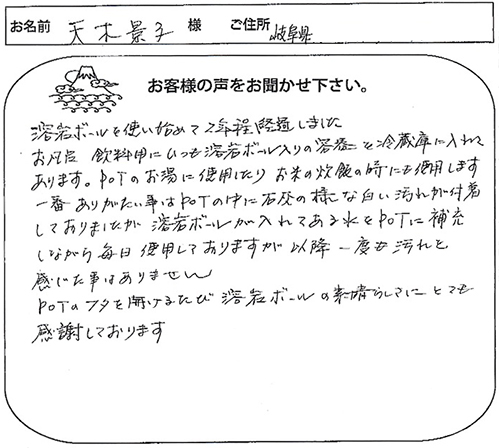 お名前 天木景子 様 ご住所 岐阜県
お客様の声をお聞かせ下さい。
溶岩ボールを使い始めて2年程経過しました
飲料用にいつも溶岩ボール入りの容器を冷蔵庫に入れて
あります。POTのお湯に使用したりお米の炊飯の時にも使用します
一番ありがたい事はPOTの中に石灰の様な白い汚れが付着
しておりましたが溶岩ボールが入れてある水をPOTに補充
しながら毎日使用しておりますが以降一度も汚れを
感じた事はありません
POTのフタを開けるたび溶岩ボールの素晴らしさにとても
感謝しております